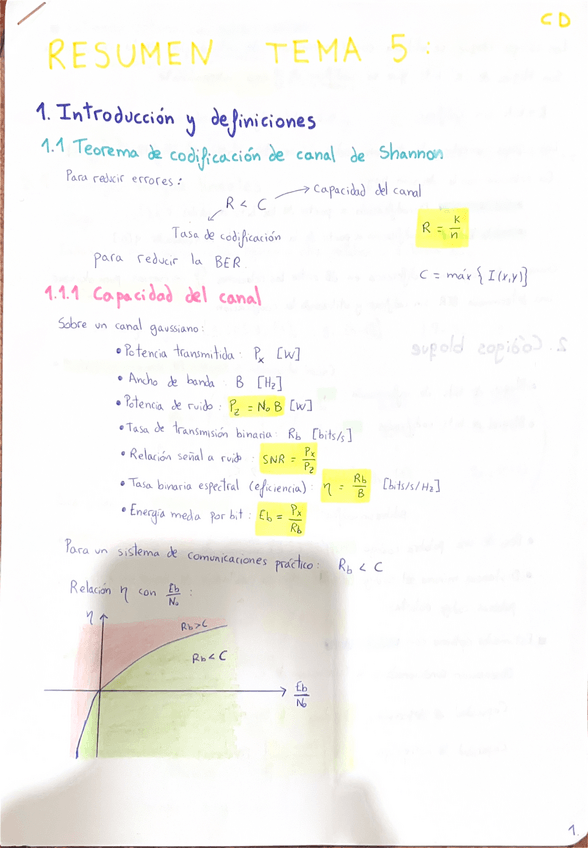 CD
RESUMEN TEMA 5:
1. Introducción y definiciones
1.1 Teorema de codificación de canal de Shannon
Para reducir errores:
R < C → Capacidad del canal
Tasa de codificación
R = K/n
para reducir la BER.
C = máx { I(x,y)}
1.1.1 Capacidad del canal
Sobre un canal gaussiano:
• Potencia transmitida: Px [W]
• Ancho de banda: B [Hz]
• Potencia de ruido: Pz = N₀ B [W]
• Tasa de transmisión binaria: Rb [bits/s]
• Relación señal a ruido: SNR = Px/Pz
• Tasa binaria espectral (eficiencia): η = Rb/B [bits/s/Hz]
• Energía media por bit: Eb = Px/Rb
Para un sistema de comunicaciones práctico: Rb < C
Relación η con Eb/N₀ :
η
Rb>C
Rb<C
Eb/N₀
1.